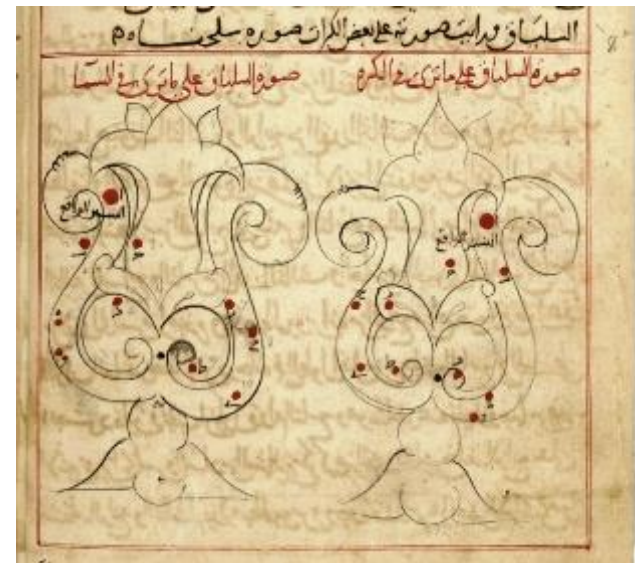 السلباق ورايت صورته على بعض الكرات صوره سلحفاه
صوره السلباق على ما ترى في الكره
صوره السلباق على ما ترى في السما
النسر الواقع
النسر الواقع